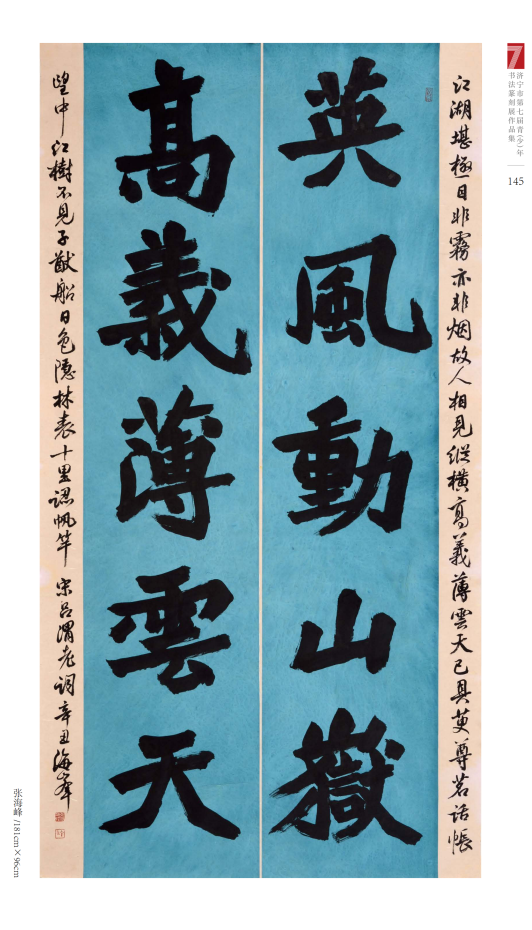 7
济宁市第七届青(少)年
书法篆刻展作品集
145
江湖堪極目非霧亦非烟故人相見縱橫高義薄雲天已具尊茗話帳
英風動山嶽
高義薄雲天
望中江樹不見子猷船日色隱林表十里認帆竿 宋吕渭老詞辛丑海峯
张海峰 /181cm×96cm